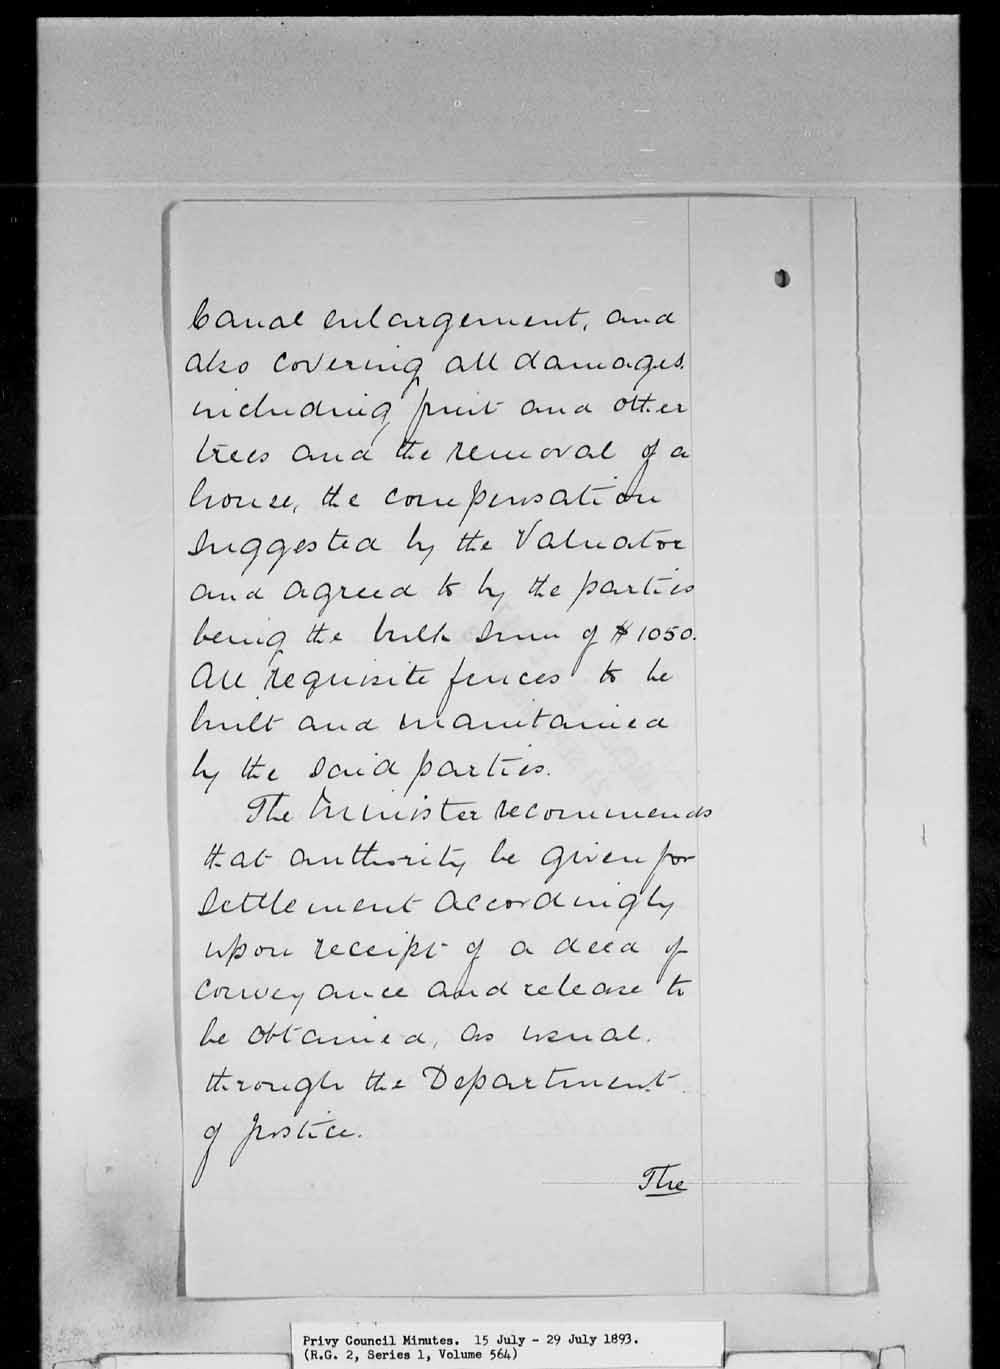 Canal enlargement, and
also covering all damages,
including fruit and other
trees and the removal of a
house, the compensation
suggested by the Valuator
and agreed to by the parties
being the bulk sum of $1050.
All requisite fences to be
built and maintained
by the said parties.
The Minister recommends
that authority be given for
settlement accordingly
upon receipt of a deed of
conveyance and release to
be obtained, as usual,
through the Department
of Justice.
The
Privy Council Minutes. 15 July - 29 July 1893.
(R.G. 2, Series 1, Volume 564)